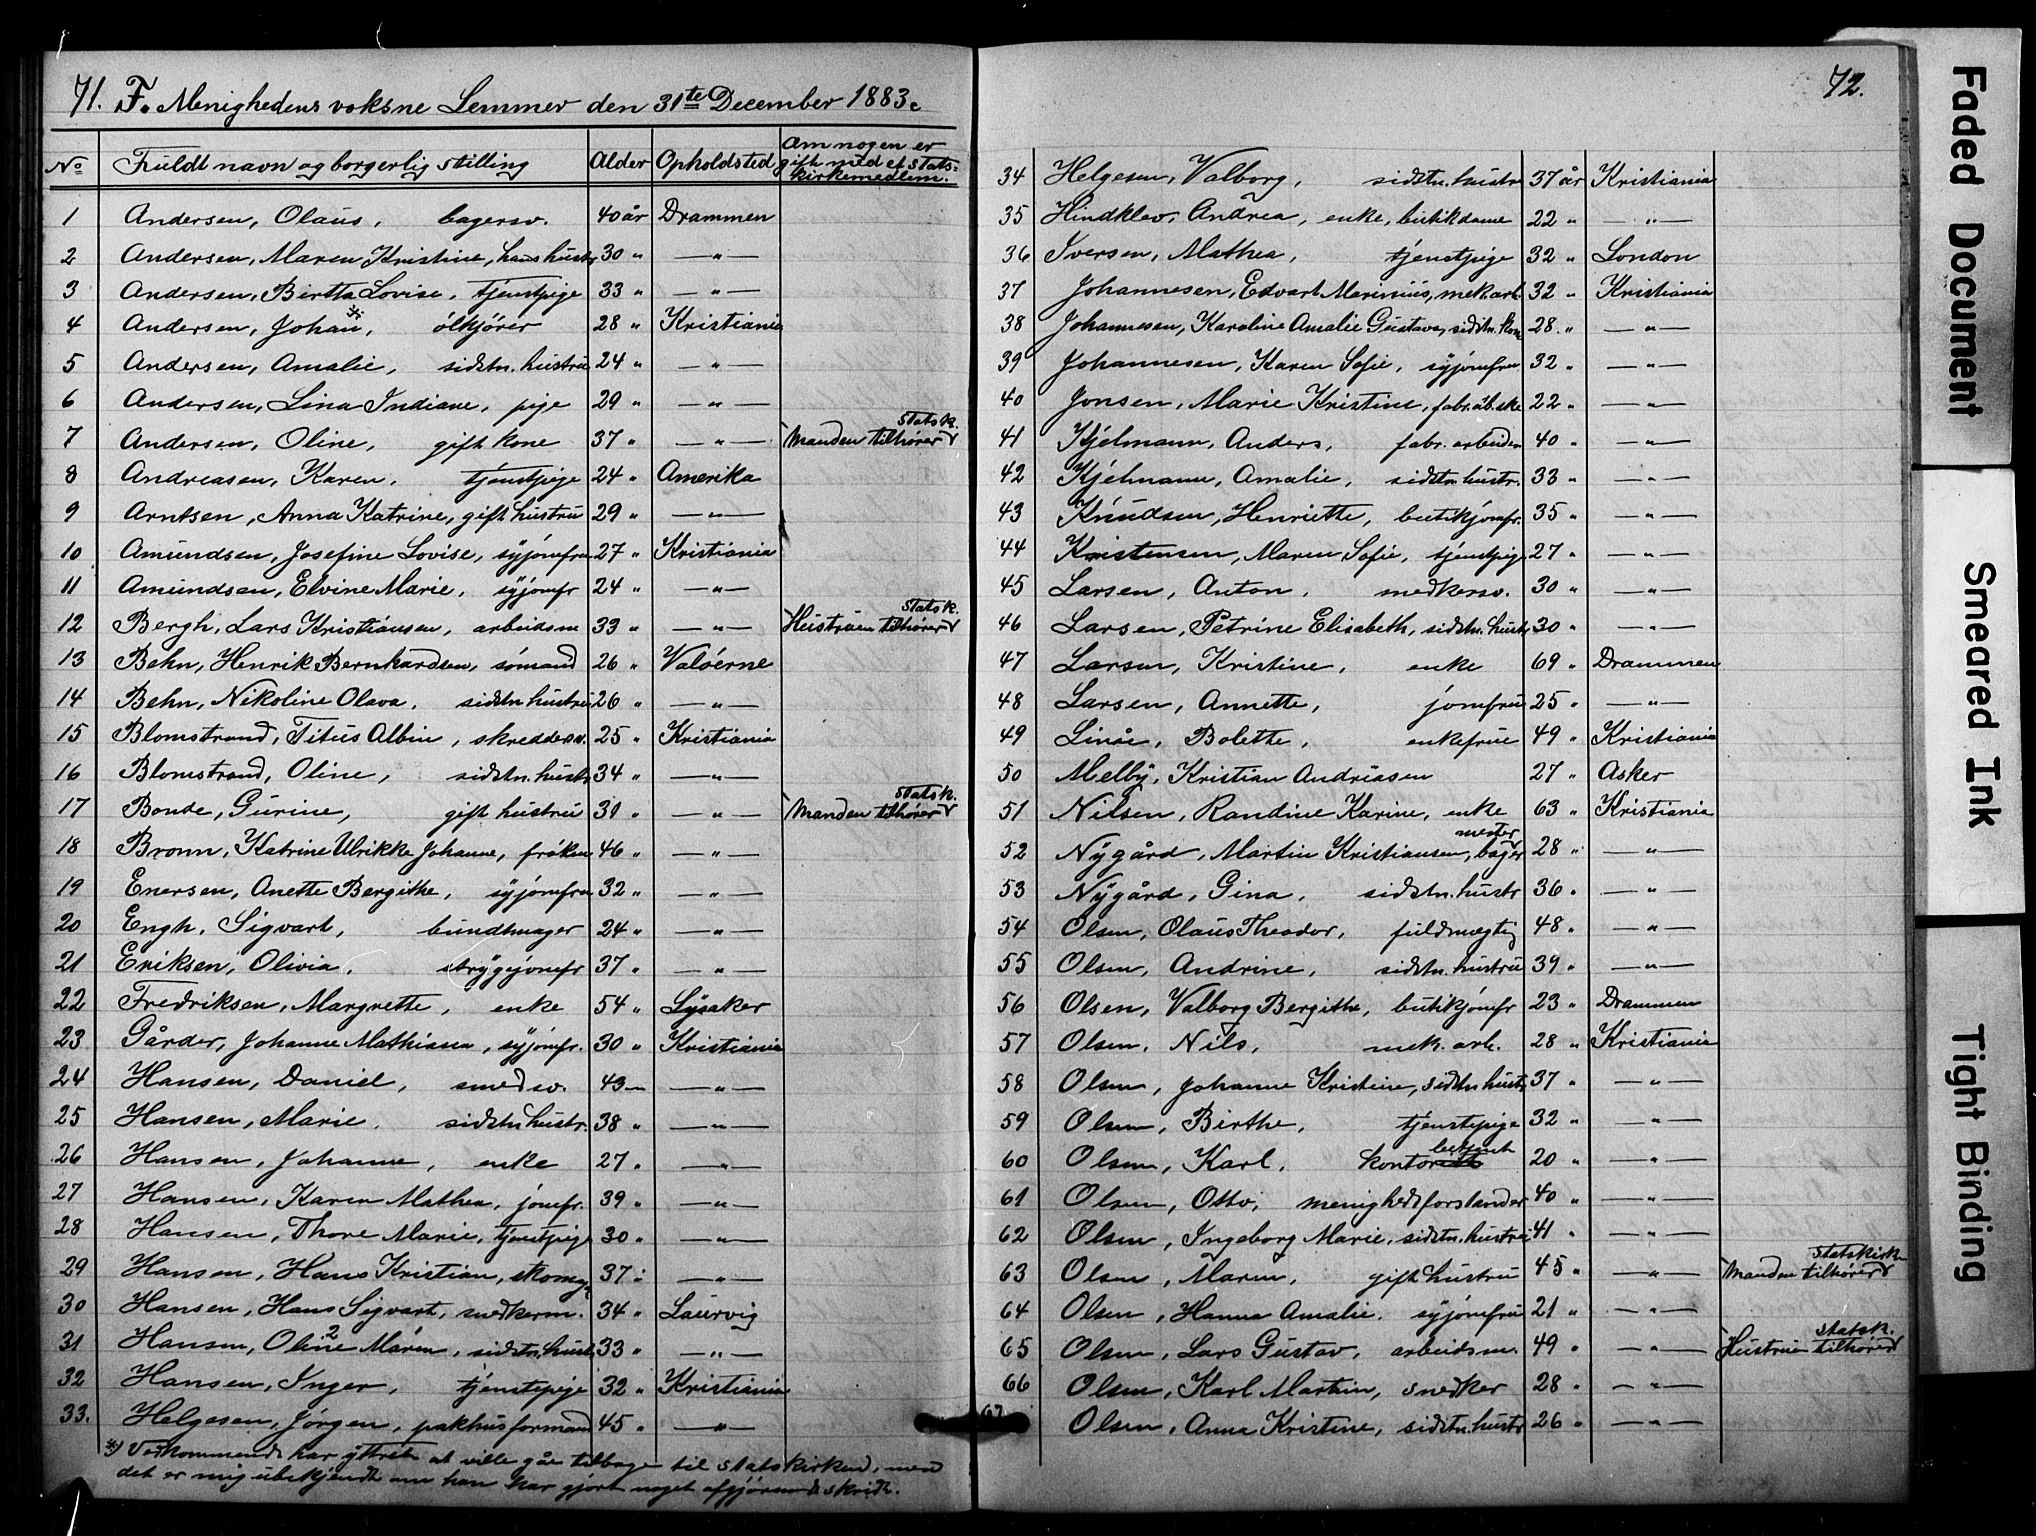 71. F. Menighedens voksne Lemmer den 31te December 1883.
No Fuldt navn og borgerlig stilling Alder Opholdsted Om nogen er gift med et Statskirkemedlem.
1 Andersen, Olaus, bagersv. 40 år Drammen
2 Andersen, Maren Kristine, hans hustr 30 " — " —
3 Andersen, Birtha Lovise, tjenstpige 33 " — " —
4 Andersen, Johan *), ølkjører 28 " Kristiania
5 Andersen, Amalie, sidstn. hustru 24 " — " —
6 Andersen, Lina Indiane, pige 29 " — " —
7 Andersen, Oline, gift kone 37 " — " — Manden tilhører Statsk.
8 Andreasen, Karen, tjenstpige 24 " Amerika
9 Arntsen, Anna Katrine, gift hustru 29 " — " —
10 Amundsen, Josefine Lovise, syjomfru 27 " Kristiania
11 Amundsen, Elvine Marie, syjomfr 24 " — " —
12 Bergh, Lars Kristiansen, arbeidsm 33 " — " — Hustruen tilhører Statsk.
13 Behn, Henrik Bernhardsen, sømand 26 " Valöerne
14 Behn, Nikoline Olava, sidstn hustru 26 " — " —
15 Blomstrand, Titus Albin, skreddersv. 25 " Kristiania
16 Blomstrand, Oline, sidstn. hustr 34 " — " —
17 Bonde, Gurine, gift hustru 31 " — " — Manden tilhører Statsk.
18 Bronn, Katrine Ulrikke Johanne, frøken 46 " — " —
19 Enersen, Anette Bergithe, syjomfru 32 " — " —
20 Engh, Sigvart, bundtmager 24 " — " —
21 Eriksen, Olivia, strygejomfr 37 " — " —
22 Fredriksen, Margrette, enke 54 " Lysaker
23 Gårder, Johanne Mathiasen, syjomfr. 30 " Kristiania
24 Hansen, Daniel, smedsv. 43 — — " —
25 Hansen, Marie, sidstn hustr. 38 " — " —
26 Hansen, Johanne, enke 27 " — " —
27 Hansen, Karen Mathea, jomfr. 39 " — " —
28 Hansen, Thore Marie, tjenstpige 30 " — " —
29 Hansen, Hans Kristian, skomag 37 " — " —
30 Hansen, Hans Sigvart, snedkerm. 34 " Laurvig
31 Hansen, Oline Maren, sidstn, hust 33 " — " —
32 Hansen, Inger, tjenstepige 32 " Kristiania
33. Helgesen, Jørgen, pakhusformand 45 " — " —
*) Vedkommende har yttret at ville gå tilbage til statskirken, men
det er mig ubekjendt om han har gjort noget afgjørende skridt.
72.
34 Helgesen, Valborg, sidstn. hustr 37 år Kristiania
35 Hindklev, Andrea, enke, butikdame 22 " — " —
36 Iversen, Mathea, tjenstpige 32 " London
37 Johannesen, Edvart Marinius, mek. arb. 32 " Kristiania
38 Johannesen, Karoline Amalie Gustava, sidstn. kone 28 " — " —
39 Johannesen, Karen Sofie, syjomfru 32 " — " —
40 Jonsen, Marie Kristine, fabr. 22 " — " —
41 Kjelmann, Anders, fabr. arbeider 40 " — " —
42 Kjelmann, Amalie, sidstn. hustr. 33 " — " —
43 Knudsen, Henriette, butikjomfr. 35 " — " —
44 Kristensen, Maren Sofie, tjenstpige 27 " — " —
45 Larsen, Anton, snedkersv. 30 " — " —
46 Larsen, Petrine Elisabeth, sidstn. hustr 30 " — " —
47 Larsen, Kristine, enke 69 " Drammen
48 Larsen, Annette, jomfru 25 " — " —
49 Linåe, Bolette, enkefrue 49 " Kristiania
50 Melby, Kristian Andreasen 27 " Asker
51 Nilsen, Randine Karine, enke 63 " Kristiania
52 Nygård, Martin Kristiansen, bagermester 28 " — " —
53 Nygård, Gina, sidstn. hustr 36 " — " —
54 Olsen, Olaus Theodor, fuldmægtig 48 " — " —
55 Olsen, Andrine, sidstn. hustru 39 " — " —
56 Olsen, Valborg Bergithe, butikjomfr 23 " Drammen
57 Olsen, Nils, mek. arb. 28 " Kristiania
58 Olsen, Johanne Kristine, sidstn hustr 37 " — " —
59 Olsen, Birthe, tjenstepige 32 " — " —
60 Olsen, Karl, kontorbetjent 20 " — " —
61 Olsen, Otto, menighedsforstander 40 " — " —
62 Olsen, Ingeborg Marie, sidstn. hustru 41 " — " —
63 Olsen, Maren, gift hustru 45 " — " — Manden tilhører statskirk
64 Olsen, Hanna Amalie, syjomfru 21 " — " —
65 Olsen, Lars Gustav, arbeidsm. 49 " — " — Hustruen tilhører statsk.
66 Olsen, Karl Martin, snedker 28 " — " —
67 Olsen, Anna Kristine, sidstn. hustr 26 " — " —
Faded Document
Smeared Ink
Tight Binding